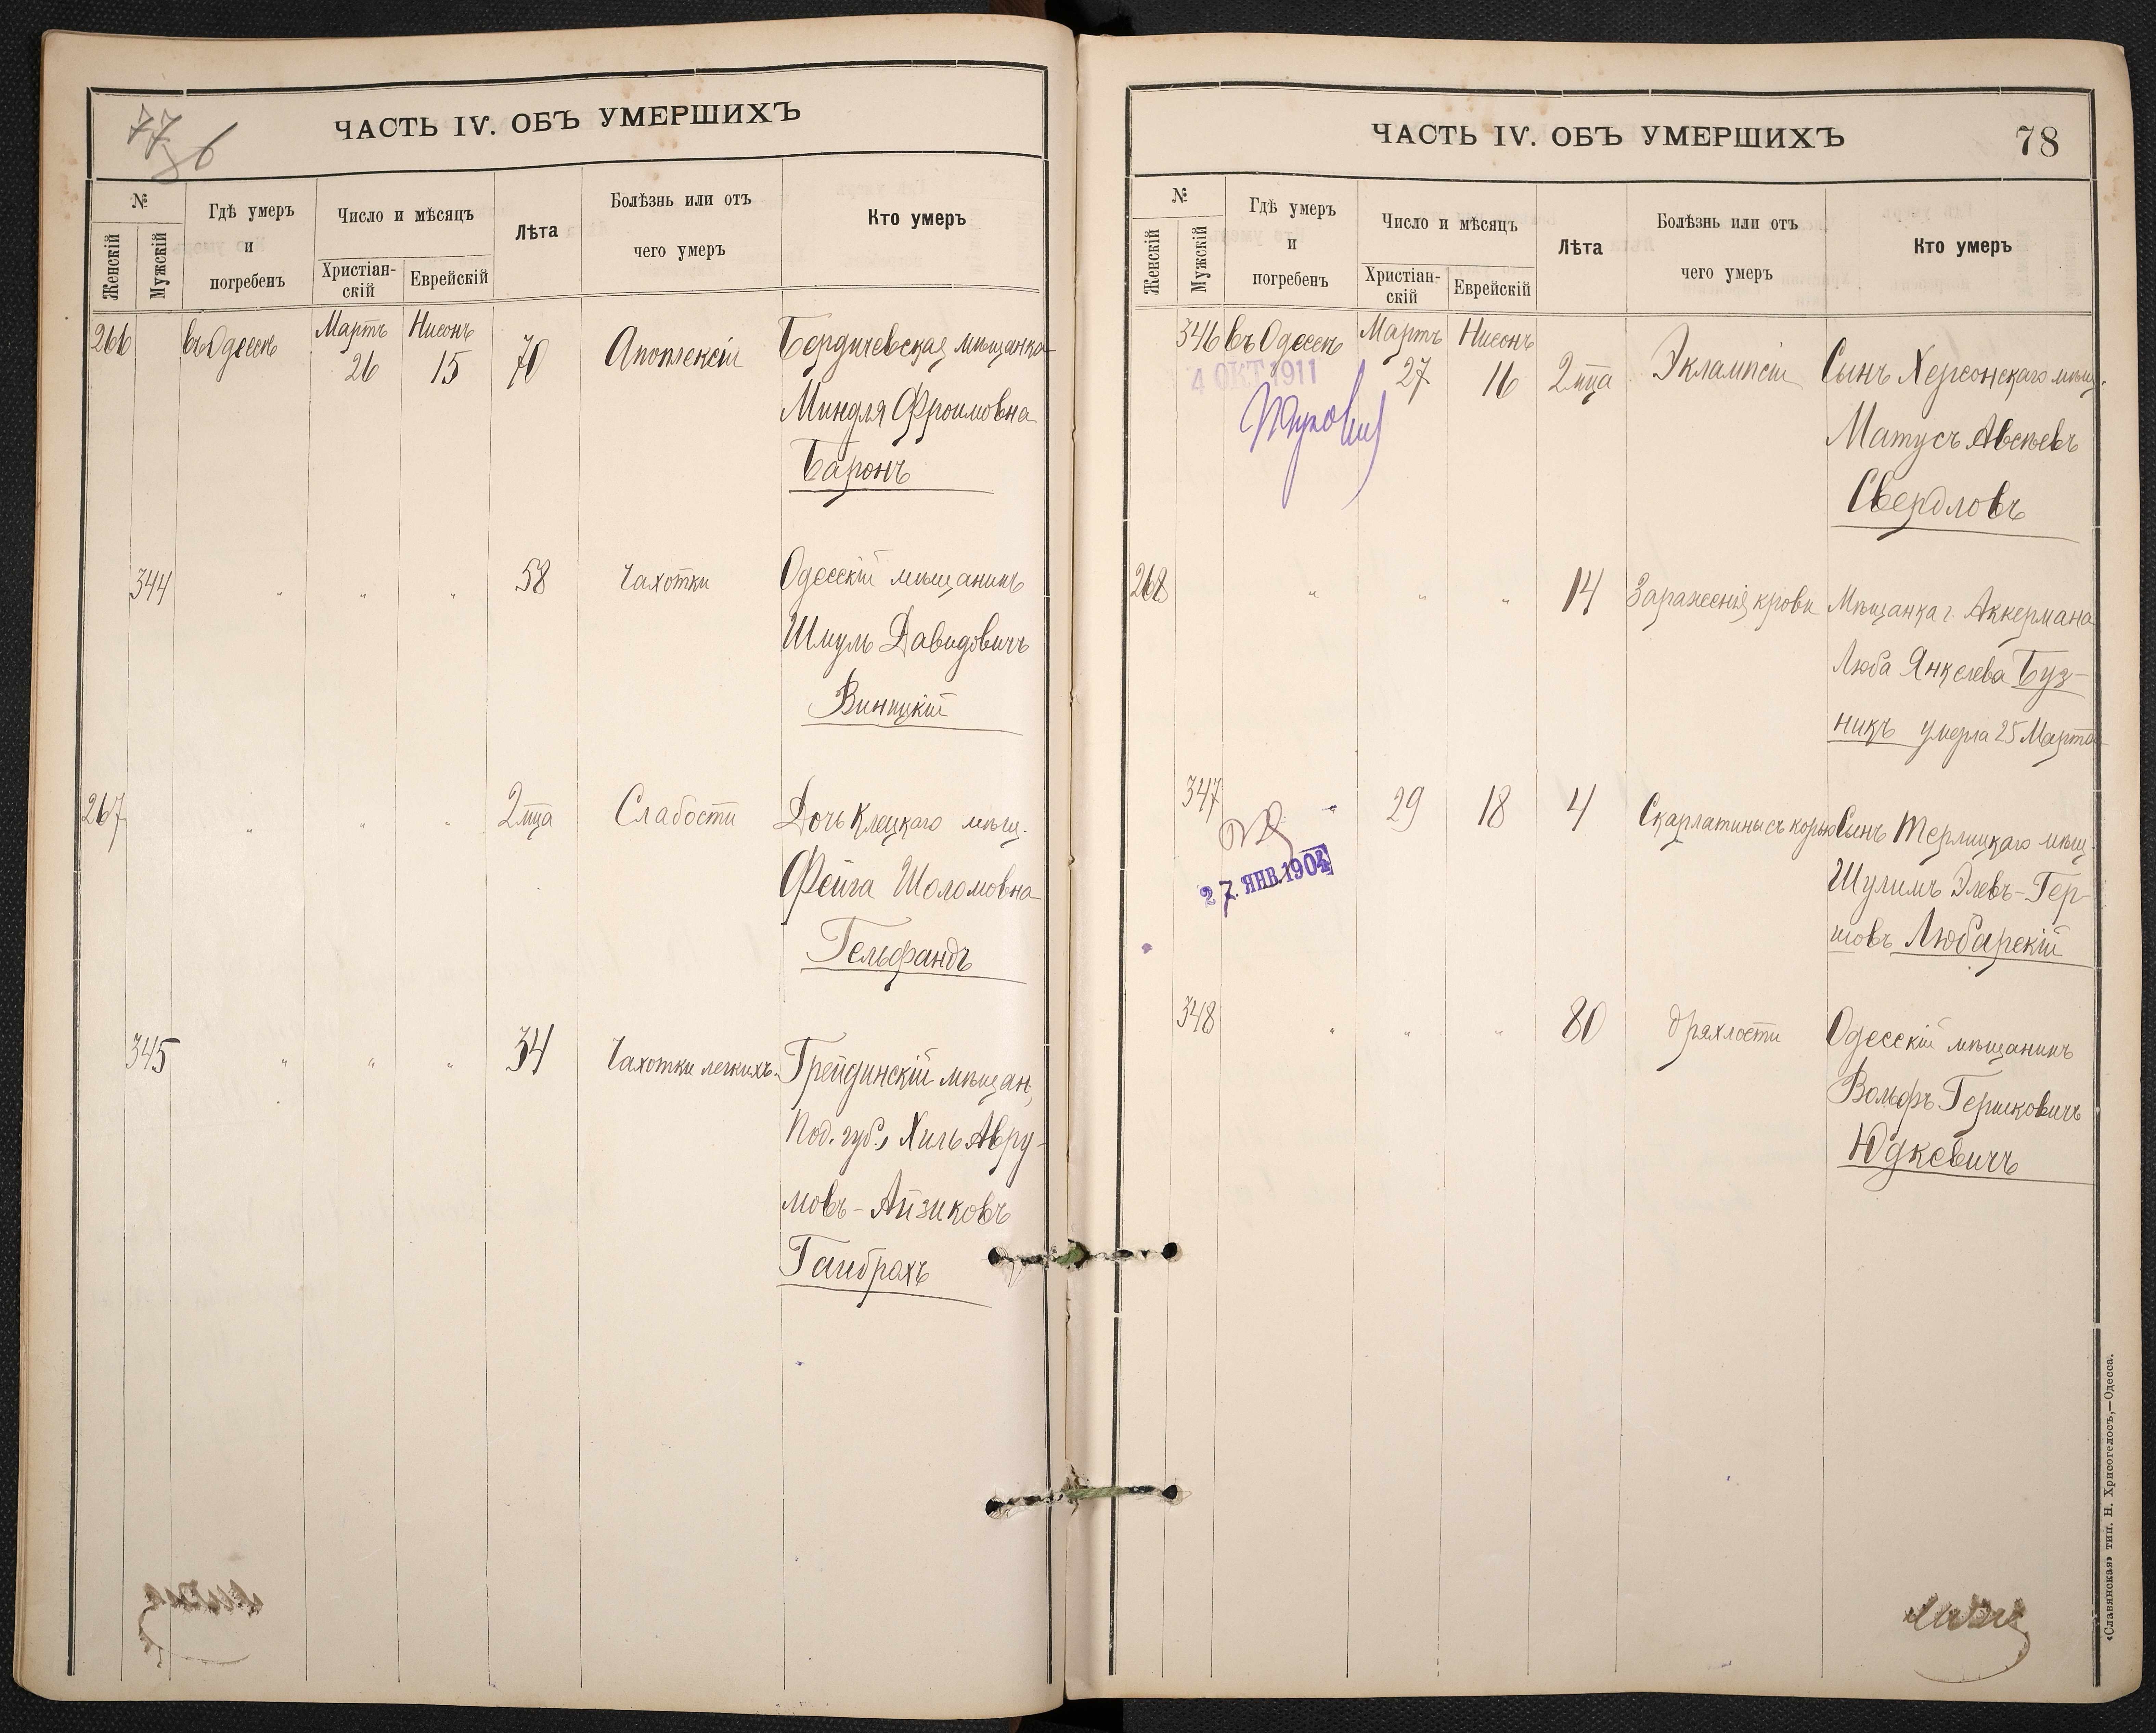 77 об
ЧАСТЬ IV. ОБЪ УМЕРШИХЪ
№
Женскій
Мужскій
Гдѣ умеръ
и
погребенъ
Число и мѣсяцъ
Христіан-
скій
Еврейскій
Лѣта
Болѣзнь или отъ
чего умеръ
Кто умеръ
266 въ Одессѣ Мартъ 26 Нисонъ 15 70 Апоплексіи Бердичевская мѣщанка
Миндля Фроимовна
Баронъ
344 " " " 58 Чахотки Одесскій мѣщанинъ
Шмуль Давидовичъ
Виницкій
267 " " " 2 мца Слабости Дочь Клецкаго мѣщ.
Фейга Шоломовна
Гельфандъ
345 " " " 34 Чахотки легкихъ Грейдинскій мѣщан.
Под. губ., Хиль Авру-
мовъ-Айзиковъ
Гаибрахъ
ЧАСТЬ IV. ОБЪ УМЕРШИХЪ
78
№
Женскій
Мужскій
Гдѣ умеръ
и
погребенъ
Число и мѣсяцъ
Христіан-
скій
Еврейскій
Лѣта
Болѣзнь или отъ
чего умеръ
Кто умеръ
346 въ Одессѣ Мартъ 27 Нисонъ 16 2 мца Эклампсіи Сынъ Херсонскаго мѣщ.
4 ОКТ 1911
Матусъ Авсѣевъ
Свердловъ
268 " " " 14 Зараженія крови Мѣщанка г. Аккермана
Люба Янкелева Буз-
никъ умерла 25 Марта
347 " 29 18 4 Скарлатины съ корью Сынъ Терлицкаго мѣщ.
27. ЯНВ. 1904
Шулимъ Элевъ-Гер-
шовъ Любарскій
348 " " " 80 дряхлости Одесскій мѣщанинъ
Вольфъ Гершковичъ
Юдкевичъ
«Славянская» тип. Н. Хрисогелосъ,—Одесса.